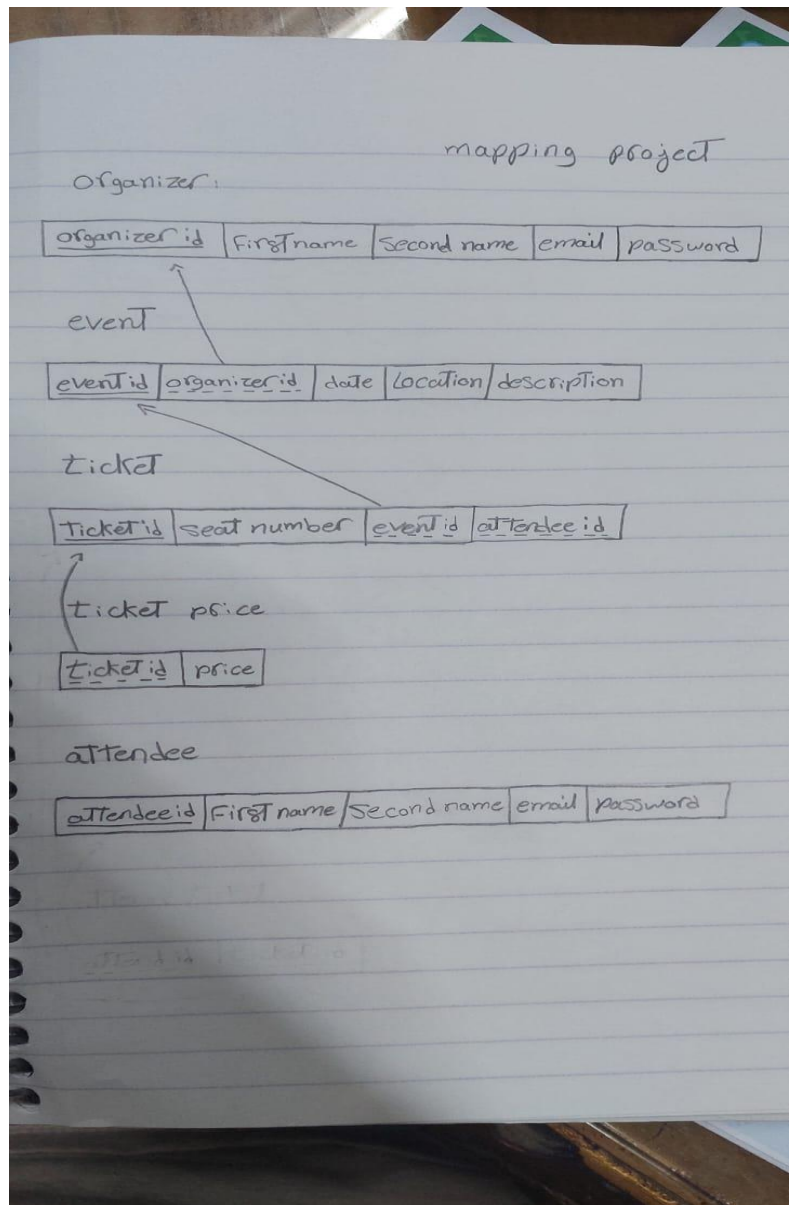 mapping project
organizer:
organizer id First name Second name email password
event
event id organizer id date Location description
ticket
Ticket id seat number event id attendee id
ticket price
ticket id price
attendee
attendee id First name Second name email password